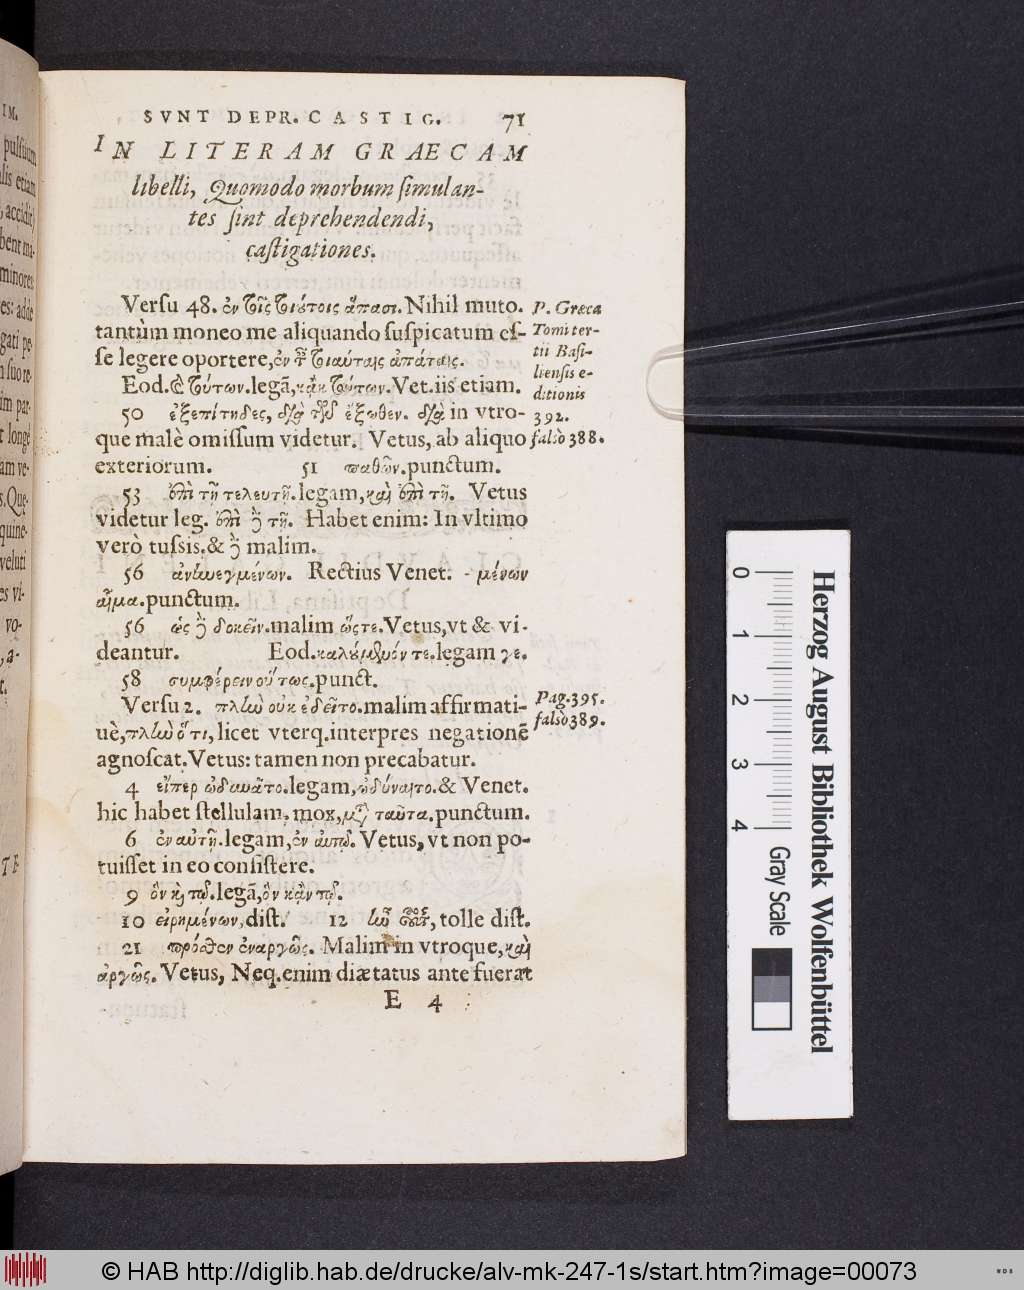 SVNT DEPR. CASTIG. 71
IN LITERAM GRAECAM
libelli, Quomodo morbum simulan-
tes sint deprehendendi,
castigationes.
Versu 48. ἐν τοῖς τοιούτοις ἅπασι. Nihil muto.
tantùm moneo me aliquando suspicatum es-
se legere oportere, ἐν τ τοιαύταις ἀπάταις.
Eod. τούτων. legã, κἀκ τούτων. Vet. iis etiam.
50 ἐξεπίτηδες, διὰ τῶν ἔξωθεν. διὰ in vtro-
que malè omissum videtur. Vetus, ab aliquo
exteriorum. 51 παθῶν. punctum.
53 ἐπὶ τῇ τελευτῇ. legam, καὶ ἐπὶ τῇ. Vetus
videtur leg. ἐπὶ δὲ τῇ. Habet enim: In vltimo
verò tussis. & δὲ malim.
56 ἀνεῳγμένων. Rectius Venet. - μένων
αἷμα. punctum.
56 ὡς δὲ δοκεῖν. malim ὥςτε. Vetus, vt & vi-
deantur. Eod. καλύμενόν τε. legam γε.
58 συμφέρειν οὕτως. punct.
Versu 2. πλὴν οὐκ ἐδεῖτο. malim affirmati-
uè, πλὴν ὅτι, licet vterq. interpres negationẽ
agnoscat. Vetus: tamen non precabatur.
4 εἴπερ ὠδυνᾶτο. legam, ὠδύναιτο. & Venet.
hic habet stellulam, mox, μὴ ταῦτα. punctum.
6 ἐν αὐτῇ. legam, ἐν αὐτῷ. Vetus, vt non po-
tuisset in eo consistere.
9 ὃν κἤ τῳ. legã, ὃν κἄν τῳ.
10 εἰρημένων, dist. 12 tolle dist.
21 πρόσθεν ἐναργῶς. Malim in vtroque, καὶ
ἀργῶς. Vetus, Neq. enim diætatus ante fuerat
E 4
P. Græca
Tomi ter-
tii Basi-
liensis e-
ditionis
392.
falsò 388.
Pag. 395.
falsò 389.
0 1 2 3 4
Gray Scale
Herzog August Bibliothek Wolfenbüttel
© HAB http://diglib.hab.de/drucke/alv-mk-247-1s/start.htm?image=00073